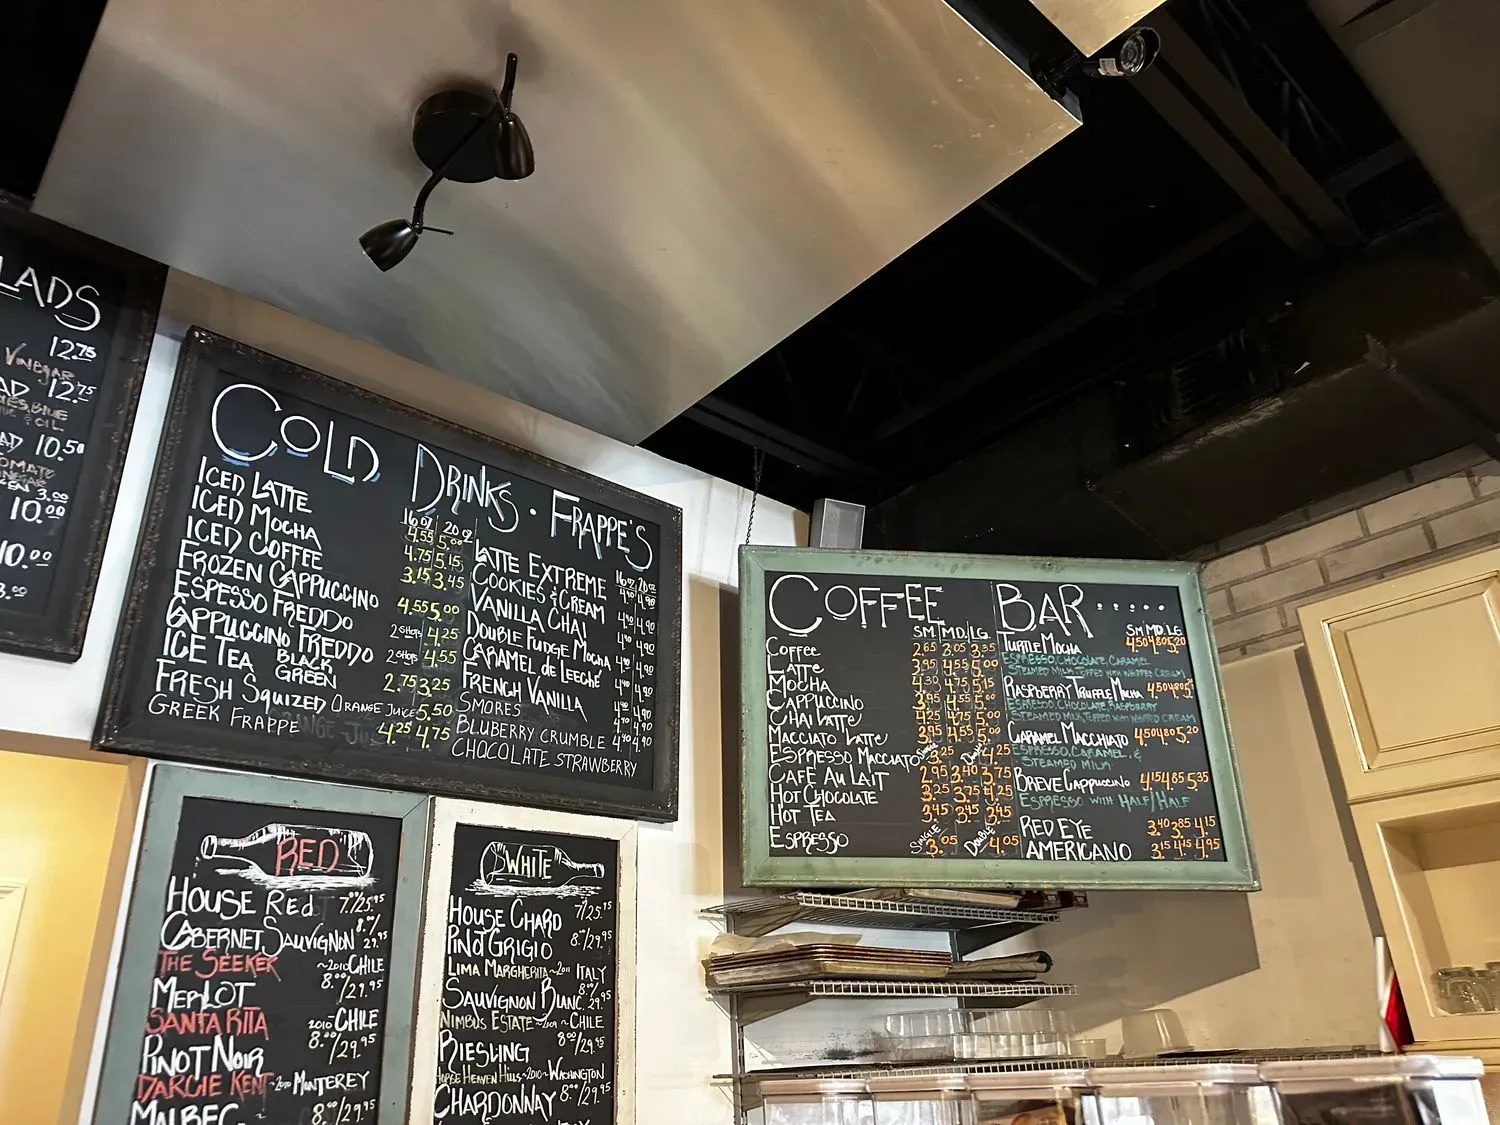 LADS
12.75
VINEGAR
AD 12.75
OIL
AD 10.50
3.00
10.00
10.00
3.00
COLD DRINKS · FRAPPE'S
16 oz 20 oz
ICED LATTE 4.55 5.00
ICED MOCHA 4.75 5.15
ICED COFFEE 3.15 3.45
FROZEN CAPPUCCINO 4.55 5.00
ESPESSO FREDDO 2 SHOTS 4.25
CAPPUCCINO FREDDO 2 SHOTS 4.55
ICE TEA BLACK GREEN 2.75 3.25
FRESH SQUIZED ORANGE JUICE 5.50
GREEK FRAPPE 4.25 4.75
16 oz 20 oz
LATTE EXTREME 4.40 4.90
COOKIES & CREAM 4.40 4.90
VANILLA CHAI 4.40 4.90
DOUBLE FUDGE MOCHA 4.40 4.90
CARAMEL de LEECHE 4.40 4.90
FRENCH VANILLA 4.40 4.90
SMORES 4.40 4.90
BLUBERRY CRUMBLE 4.40 4.90
CHOCOLATE STRAWBERRY
COFFEE BAR.....
SM MD. LG.
COFFEE 2.65 3.05 3.35
LATTE 3.95 4.55 5.00
MOCHA 4.30 4.75 5.15
CAPPUCCINO 3.95 4.55 5.00
CHAI LATTE 4.25 4.75 5.00
MACCIATO LATTE 3.95 4.55 5.00
ESPRESSO MACCIATO SINGLE 3.25 DOUBLE 4.25
CAFÉ AU LAIT 2.95 3.40 3.75
HOT CHOCOLATE 3.25 3.75 4.25
HOT TEA 3.45 3.45 3.45
ESPRESSO SINGLE 3.05 DOUBLE 4.05
SM MD. LG.
TURTLE MOCHA 4.50 4.80 5.20
ESPRESSO, CHOCOLATE, CARAMEL
STEAMED MILK, TOPPED WITH WHIPPED CREAM
RASPBERRY TRUFFLE MOCHA 4.50 4.80
ESPRESSO, CHOCOLATE, RASPBERRY
STEAMED MILK, TOPPED WITH WHIPPED CREAM
CARAMEL MACCHIATO 4.50 4.80 5.20
ESPRESSO, CARAMEL, &
STEAMED MILK
BREVE CAPPUCCINO 4.15 4.85 5.35
ESPRESSO WITH HALF/HALF
RED EYE 3.40 3.85 4.15
AMERICANO 3.15 4.45 4.95
RED
HOUSE RED 7./25.95
CABERNET SAUVIGNON 8.00/29.95
THE SEEKER ~2010 CHILE
MERLOT 8.00/29.95
SANTA RITA 2010 - CHILE
PINOT NOIR 8.00/29.95
DARCIE KENT ~2010 MONTEREY
MALBEC ~ 8.00/29.95
WHITE
HOUSE CHARD 7/25.95
PINOT GRIGIO 8.00/29.95
LIMA MARGHERITA ~2011 ITALY
SAUVIGNON BLANC 8.00/29.95
NIMBUS ESTATE ~2009 ~ CHILE
RIESLING 8.00/29.95
HORSE HEAVEN HILLS ~2010 ~ WASHINGTON
CHARDONNAY 8.00/29.95